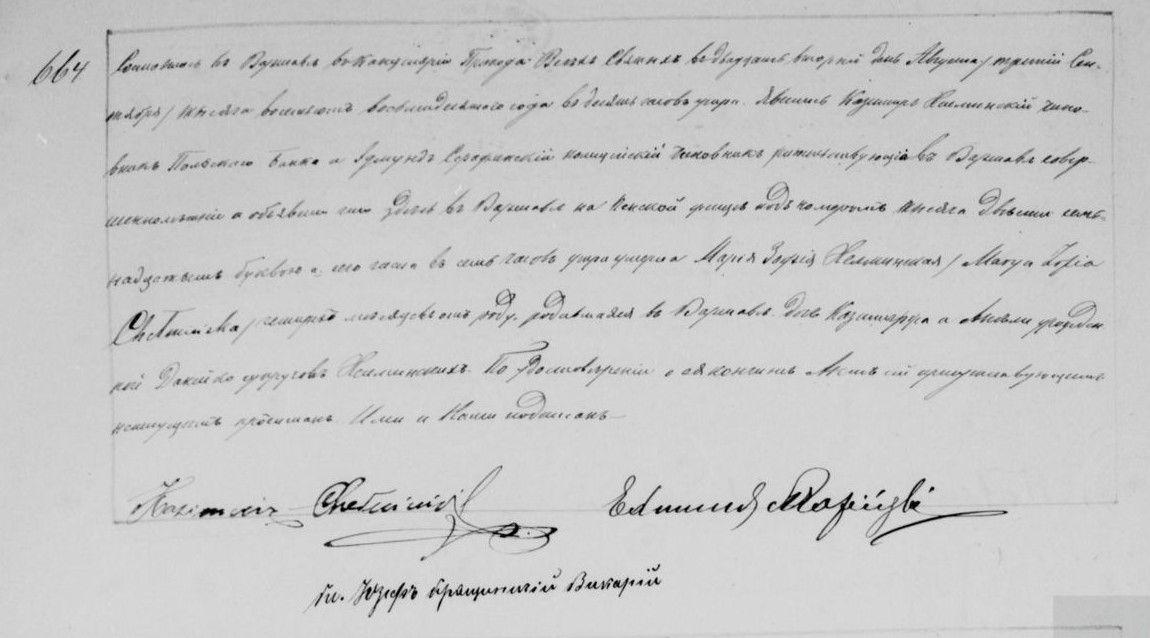 664
Состоялось въ Варшавѣ въ Канцеляріи Прихода Всѣхъ Святыхъ въ двадцать второй день Августа / третій Сен-
тября / тысяча восемьсотъ восемьдесятаго года въ десять часовъ утра. Явились Казиміръ Хелминскій чино-
вникъ Польскаго Банка и Эдмундъ полицейскій чиновникъ жительствующіе въ Варшавѣ совер-
шеннолѣтніе и объявили что здѣсь въ Варшавѣ на улицѣ подъ номеромъ тысяча двѣсти семь-
надцатымъ буквою въ семь часовъ утра умерла Марія Зофія Хелминская / Marya Zofia
Chełmińska / четырехъ мѣсяцевъ отъ роду, родившаяся въ Варшавѣ дочь Казиміра и урожден-
ной супруговъ Хелминскихъ. По удостовѣреніи о ея кончинѣ Актъ сей присутствующимъ
прочитанъ Ими и Нами подписанъ
Kazimierz Chełmiński Edmund
Кс. Юзефъ Викарій